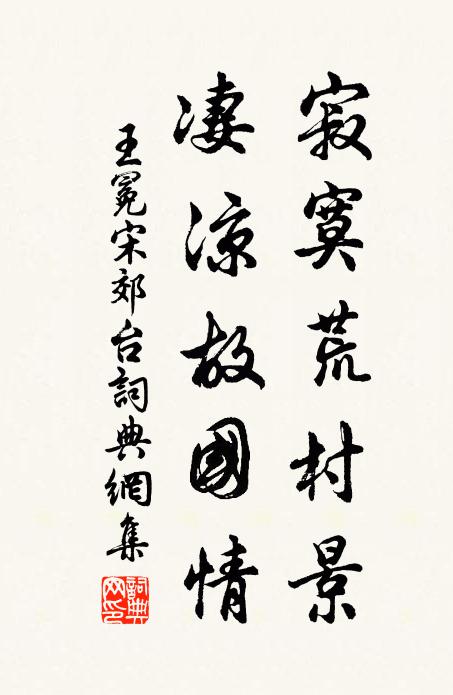 寂寞荒村景
淒涼故國情
王冕宋郊台詞典網集
詞典网印